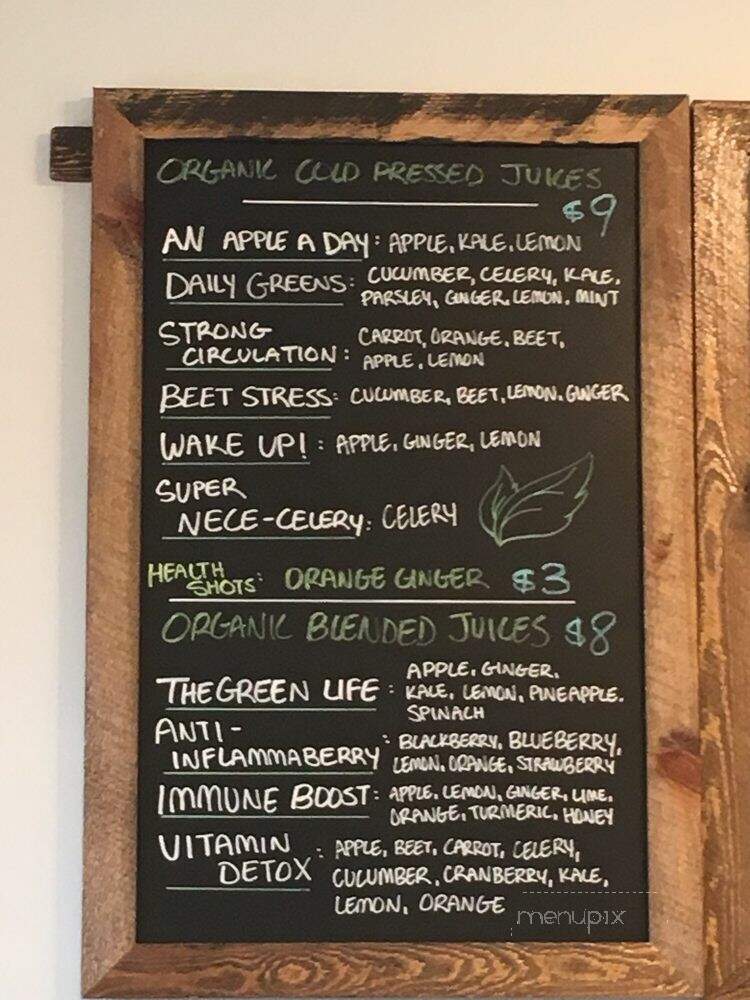 ORGANIC COLD PRESSED JUICES
$9
AN APPLE A DAY: APPLE, KALE, LEMON
DAILY GREENS: CUCUMBER, CELERY, KALE,
PARSLEY, GINGER, LEMON, MINT
STRONG
CIRCULATION: CARROT, ORANGE, BEET,
APPLE, LEMON
BEET STRESS: CUCUMBER, BEET, LEMON, GINGER
WAKE UP!: APPLE, GINGER, LEMON
SUPER
NECE-CELERY: CELERY
HEALTH
SHOTS: ORANGE GINGER $3
ORGANIC BLENDED JUICES $8
THE GREEN LIFE: APPLE, GINGER,
KALE, LEMON, PINEAPPLE,
SPINACH
ANTI-
INFLAMMABERRY: BLACKBERRY, BLUEBERRY,
LEMON, ORANGE, STRAWBERRY
IMMUNE BOOST: APPLE, LEMON, GINGER, LIME,
ORANGE, TURMERIC, HONEY
VITAMIN
DETOX: APPLE, BEET, CARROT, CELERY,
CUCUMBER, CRANBERRY, KALE,
LEMON, ORANGE
menupix